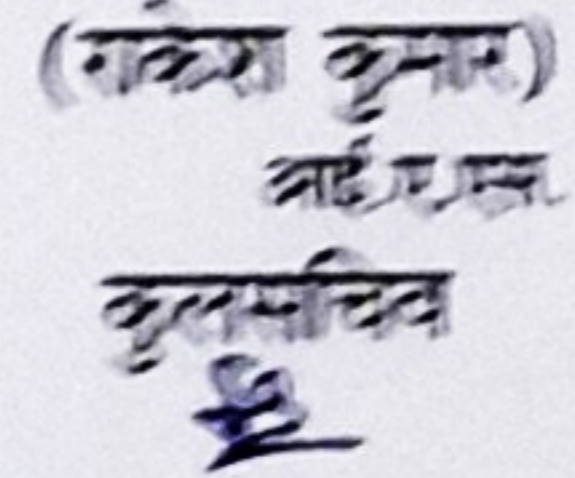 (राकेश कुमार)
आई.ए.एस.
कुलसचिव